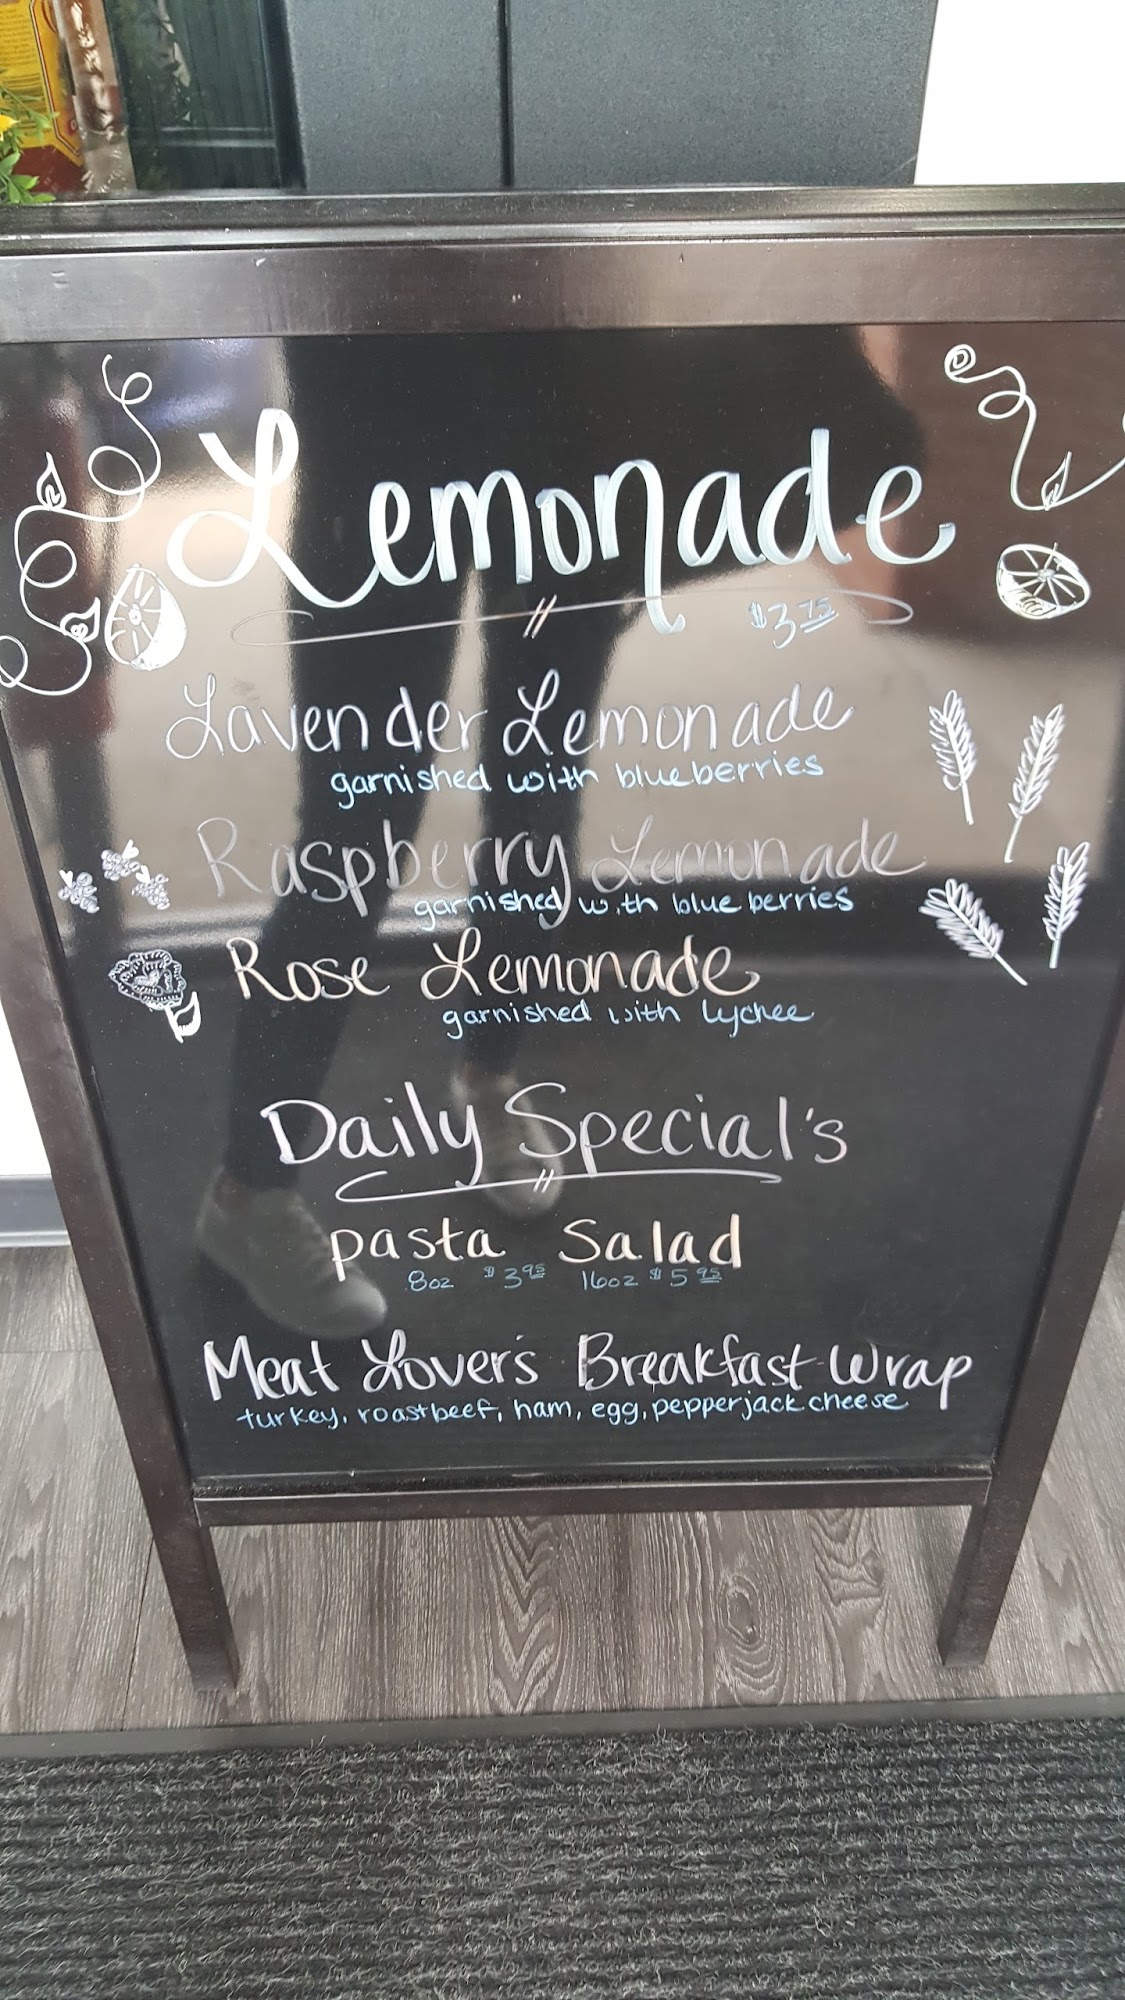 Lemonade
$3.75
Lavender Lemonade
garnished with blueberries
Raspberry Lemonade
garnished with blueberries
Rose Lemonade
garnished with lychee
Daily Special's
pasta Salad
8oz $3.95 16oz $5.95
Meat Lover's Breakfast Wrap
turkey, roastbeef, ham, egg, pepperjack cheese